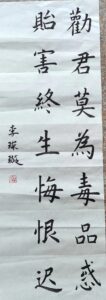 勸君莫為毒品惑
貽害終生悔恨迟